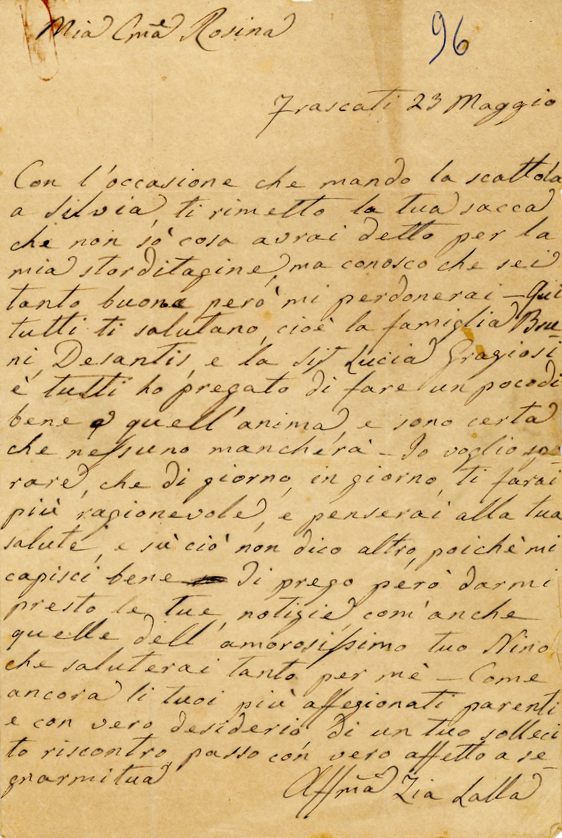 Mia Cmã Rosina
96
Frascati 23 Maggio
Con l'occasione che mando la scattola
a Silvia, ti rimetto la tua sacca
che non sò cosa avrai detto per la
mia storditagine, ma conosco che sei
tanto buona però mi perdonerai - Qui
tutti ti salutano, cioè la famiglia Bru-
ni, Desantis, e la Sig Lucia Graziosi
è tutti ho pregato di fare un poco di
bene a quell'anima, e sono certa
che nessuno mancherà - Io voglio spe-
rare, che di giorno, in giorno, ti farai
più ragionevole, e penserai alla tua
salute, e sù ciò non dico altro, poichè mi
capisci bene di prego però darmi
presto le tue notizie com'anche
quelle dell'amorosissimo tuo Nino
che saluterai tanto per mè - Come
ancora li tuoi più affezionati parenti
e con vero desiderio di un tuo solleci
to riscontro passo con vero affetto a se-
gnarmi tua
Affmã Zia Lalla